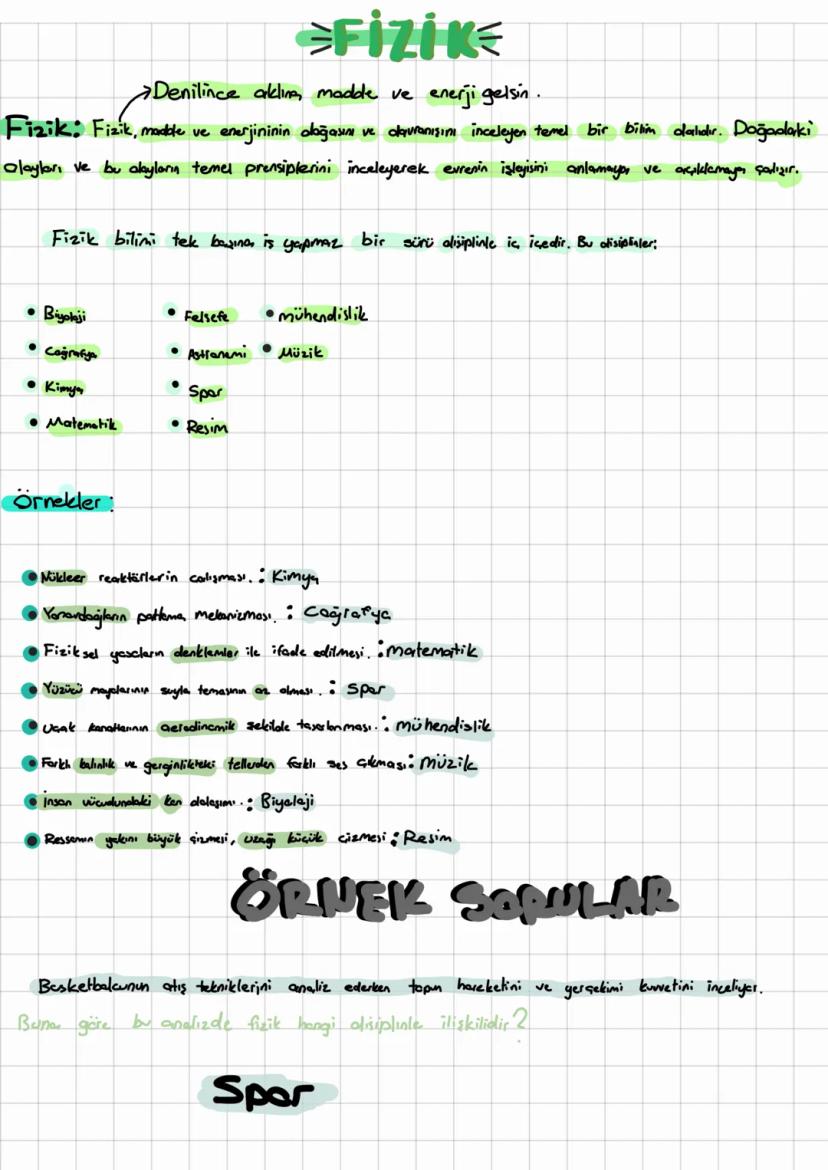 FİZİK
Denilince aklına, madde ve enerji gelsin.
Fizik: Fizik, madde ve enerjininin doğasını ve davranışını inceleyen temel bir bilim dalıdır. Doğadaki
olayları ve bu olayların temel prensiplerini inceleyerek evrenin işleyişini anlamaya ve açıklamaya çalışır.
Fizik bilimi tek başına iş yapmaz bir sürü disiplinle iç içedir. Bu disiplinler:
• Biyoloji • Felsefe • mühendislik
• Coğrafya • Astronomi • Müzik
• Kimya • Spor
• Matematik • Resim
Örnekler:
• Nükleer reaktörlerin çalışması. : Kimya
• Yanardağların patlama mekanizması. : Coğrafya
• Fiziksel yasaların denklemler ile ifade edilmesi. : matematik
• Yüzücü mayolarının suyla temasının az olması. : Spor
• Uçak kanatlarının aerodinamik şekilde tasarlanması. : mühendislik
• Farklı kalınlık ve gerginlikteki tellerden farklı ses çıkması: Müzik
• İnsan vücudundaki kan dolaşımı. : Biyoloji
• Ressamın yakını büyük çizmesi, uzağı küçük çizmesi : Resim
ÖRNEK SORULAR
Basketbolcunun atış tekniklerini analiz ederken topun hareketini ve yerçekimi kuvvetini inceliyor.
Buna göre bu analizde fizik hangi disiplinle ilişkilidir?
Spor